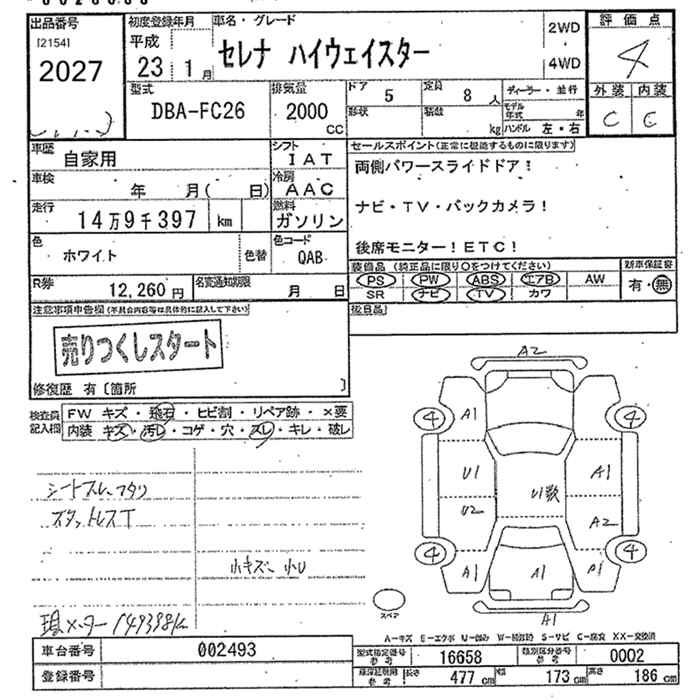 出品番号 初度登録年月 車名・グレード 評価点
[2154] 平成 2WD
2027 23年 1月 セレナ ハイウェイスター 4WD 4
型式 排気量 ドア 5 定員 8人 ディーラー・並行 外装 内装
DBA-FC26 2000 CC 形状 積載 kg モデル年式 年 C C
ハンドル 左・右
車歴 自家用 シフト IAT セールスポイント(正常に機能するものに限ります)
車検 年 月( 日) 冷房 AAC 両側パワースライドドア!
走行 14万9千397 km 燃料 ガソリン ナビ・TV・バックカメラ!
色 ホワイト 色替 色コード QAB 後席モニター!ETC!
R券 12,260円 名変通知期限 月 日 装備品(純正品に限り○をつけてください) 新車保証書
PS PW ABS エアB AW 有・無
SR ナビ TV カワ
注意事項申告欄(不具合内容等は具体的に記入して下さい) 後日品
売りつくしスタート
修復歴 有〔箇所 〕
検査員記入欄 FW キズ・飛石・ヒビ割・リペア跡・×要
内装 キズ・汚レ・コゲ・穴・スレ・キレ・破レ
A2
4 A1 4
U1 A1
U1数
U2 A2
4 4
A1 A1 A1
A1
スペア
シートスレ
スタットレスT
小キズ 小U
現メーター 149398k
A-キズ E-エクボ U-凹み W-補修跡 S-サビ C-腐食 XX-交換済
車台番号 002493 型式指定番号 参考 16658 類別区分番号 参考 0002
登録番号 長さ 477 cm 幅 173 cm 高さ 186 cm